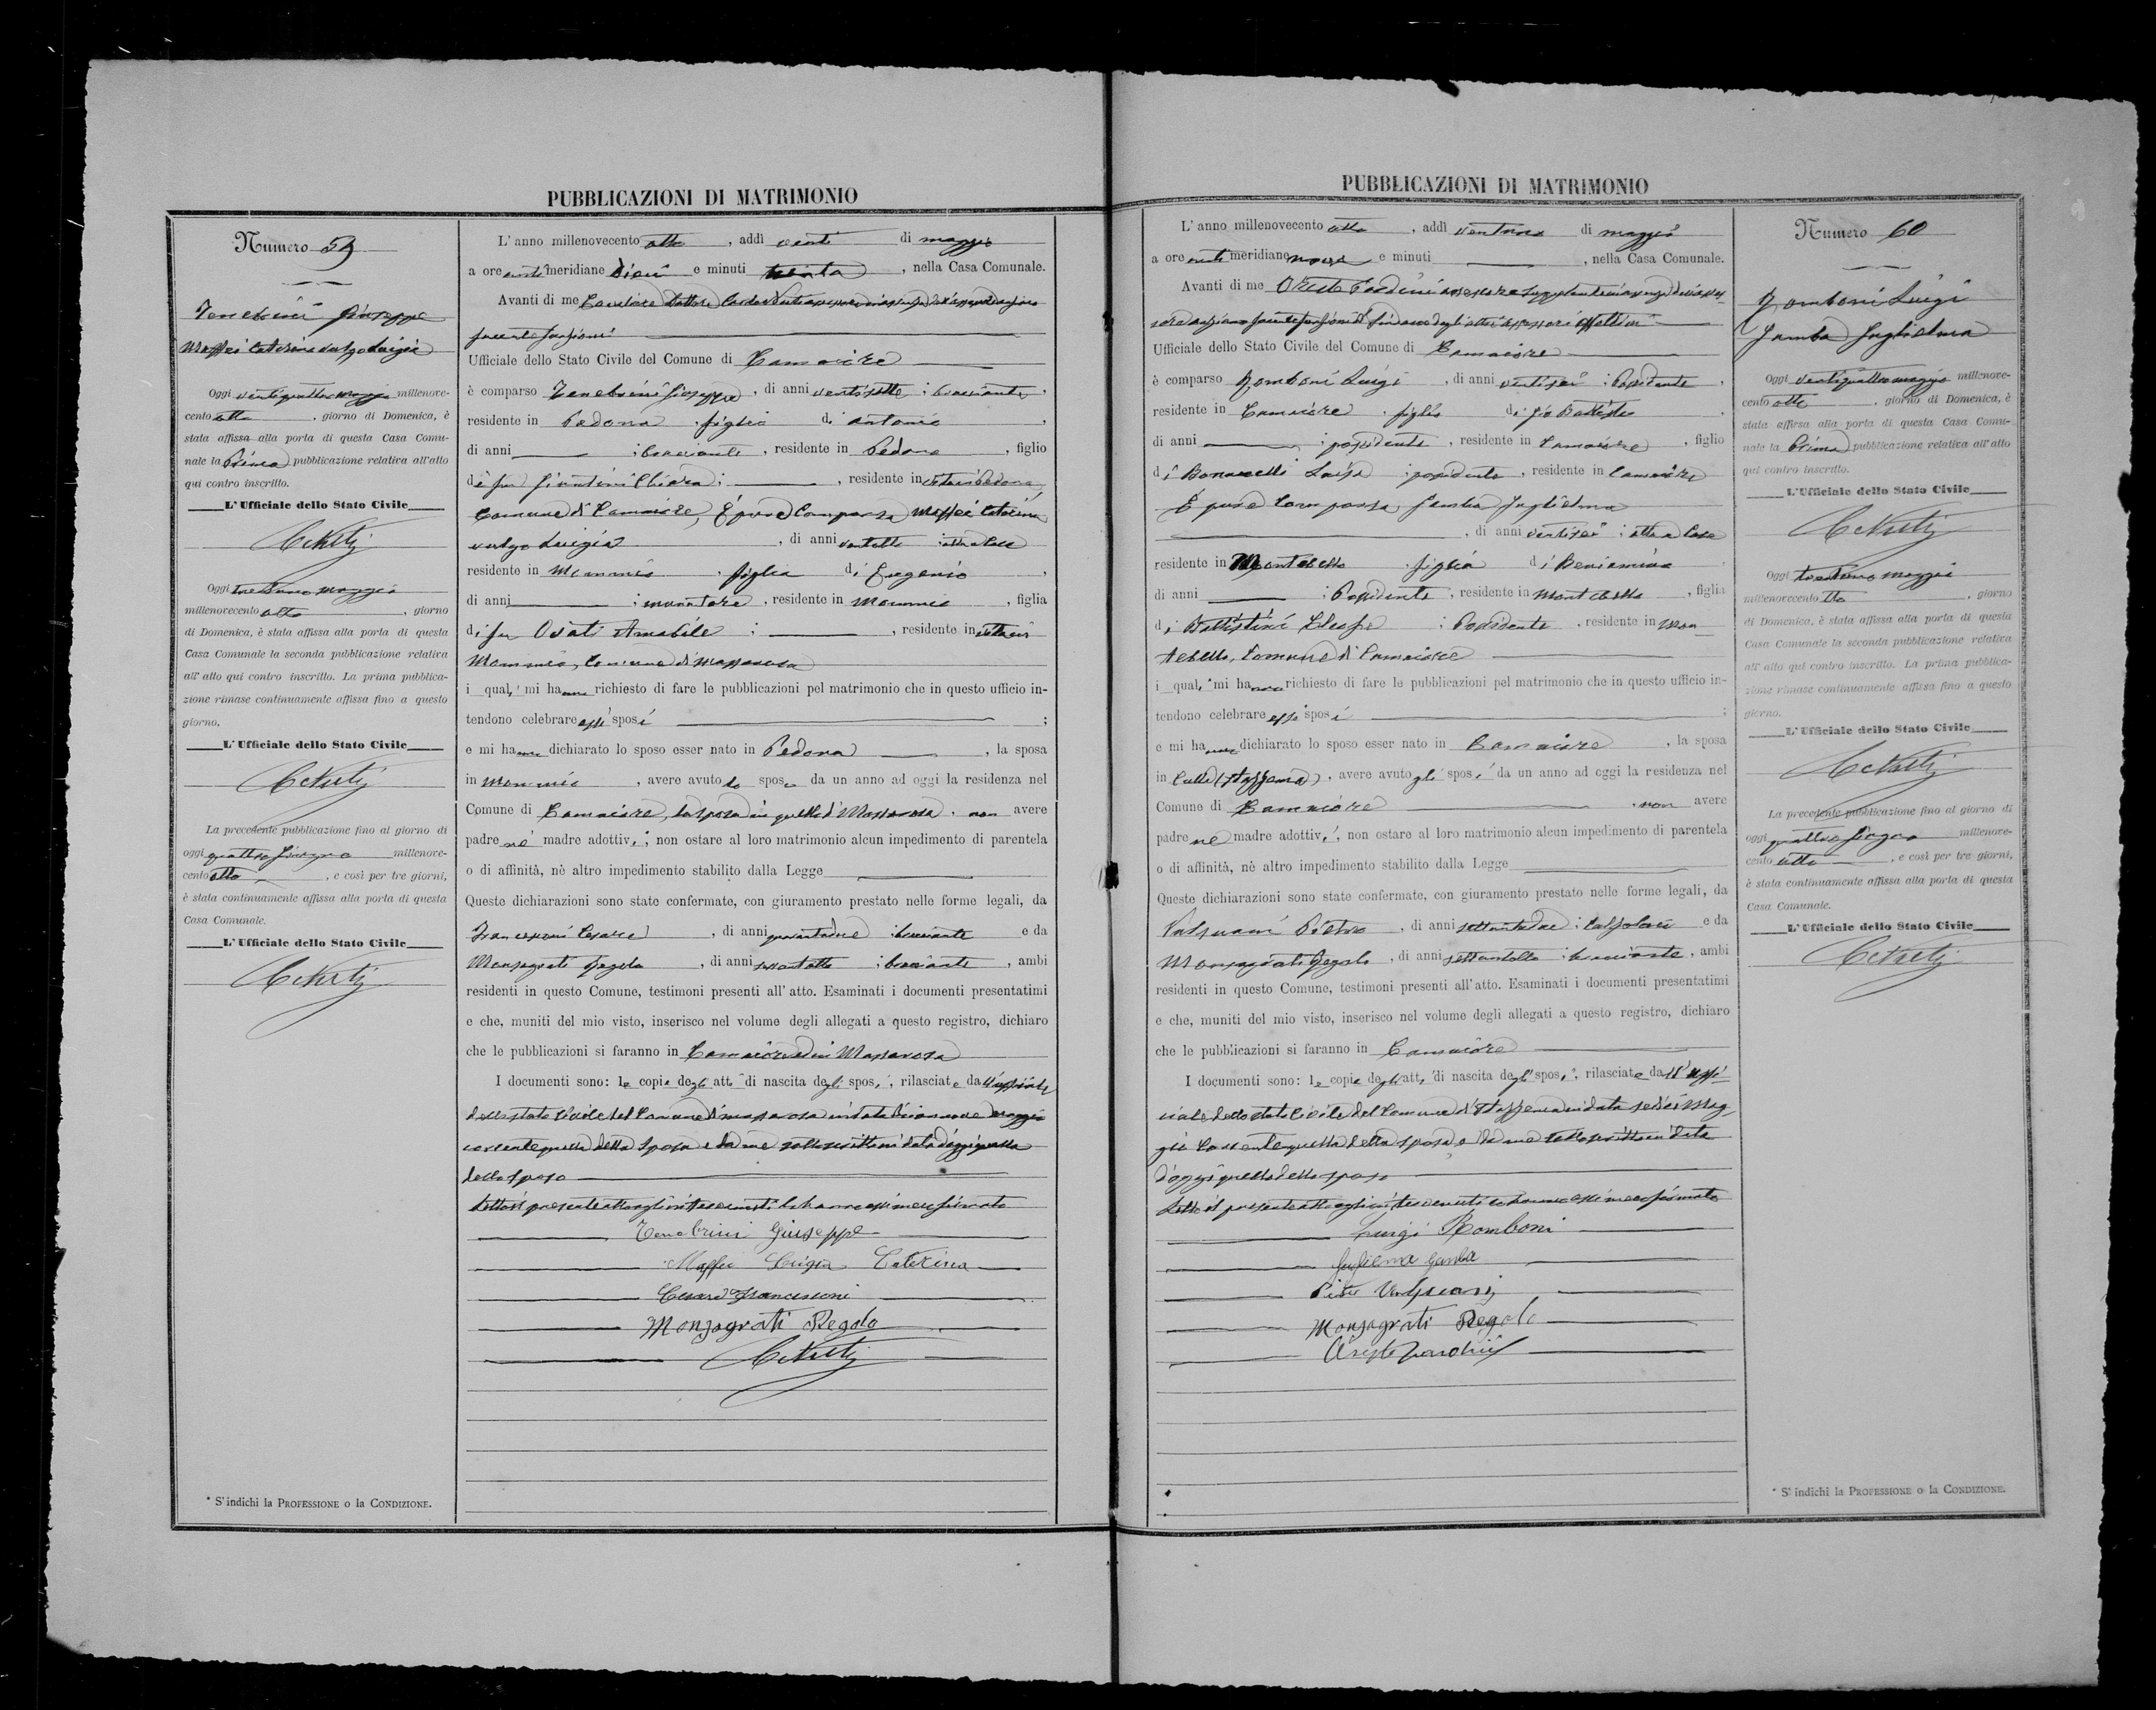 PUBBLICAZIONI DI MATRIMONIO
Numero 59
Tenebrini Giuseppe
Maffei Caterina vulgo Luigia
Oggi ventiquattro maggio millenove-
cento otto, giorno di Domenica, è
stata affissa alla porta di questa Casa Comu-
nale la Prima pubblicazione relativa all'atto
qui contro inscritto.
L'Ufficiale dello Stato Civile
Oggi trentuno maggio
millenovecento otto, giorno
di Domenica, è stata affissa alla porta di questa
Casa Comunale la seconda pubblicazione relativa
all'atto qui contro inscritto. La prima pubblica-
zione rimase continuamente affissa fino a questo
giorno.
L'Ufficiale dello Stato Civile
La precedente pubblicazione fino al giorno di
oggi quattro giugno millenove-
cento otto, e così per tre giorni,
è stata continuamente affissa alla porta di questa
Casa Comunale.
L'Ufficiale dello Stato Civile
* S'indichi la PROFESSIONE o la CONDIZIONE.
L'anno millenovecento otto, addì venti di maggio
a ore anti meridiane dieci e minuti trenta, nella Casa Comunale.
Avanti di me Cavaliere Dottore
facente funzioni
Ufficiale dello Stato Civile del Comune di Camaiore
è comparso Tenebrini Giuseppe, di anni ventisette; bracciante,
residente in Pedona, figlio di Antonio,
di anni ; bracciante, residente in Pedona, figlio
di fu Chiara; , residente in vita in Pedona,
Comune di Camaiore, È pure comparsa Maffei Caterina
vulgo Luigia, di anni ventotto; atta a casa
residente in Mommio, figlia di Eugenio,
di anni ; muratore, residente in Mommio, figlia
di fu Amabile; , residente in vita in
Mommio, Comune di Massarosa
i quali mi hanno richiesto di fare le pubblicazioni pel matrimonio che in questo ufficio in-
tendono celebrare essi sposi;
e mi hanno dichiarato lo sposo esser nato in Pedona, la sposa
in Mommio, avere avuto lo sposo da un anno ad oggi la residenza nel
Comune di Camaiore, la sposa in quello di Massarosa, non avere
padre nè madre adottivi, non ostare al loro matrimonio alcun impedimento di parentela
o di affinità, nè altro impedimento stabilito dalla Legge
Queste dichiarazioni sono state confermate, con giuramento prestato nelle forme legali, da
Francesconi Cesare, di anni quarantadue; bracciante e da
Monsagrati Regolo, di anni settantotto; bracciante, ambi
residenti in questo Comune, testimoni presenti all'atto. Esaminati i documenti presentatimi
e che, muniti del mio visto, inserisco nel volume degli allegati a questo registro, dichiaro
che le pubblicazioni si faranno in Camaiore ed in Massarosa
I documenti sono: le copie degli atti di nascita degli sposi, rilasciate dall'uffiziale
dello stato Civile del Comune di Massarosa in data diciannove maggio
corrente quella della sposa e da me sottoscritto in data d'oggi quella
dello sposo
Letto il presente atto agli intervenuti lo hanno essi meco firmato
Tenebrini Giuseppe
Maffei Luigia Caterina
Cesare Francesconi
Monsagrati Regolo
PUBBLICAZIONI DI MATRIMONIO
L'anno millenovecento otto, addì ventuno di maggio
a ore anti meridiane nove e minuti , nella Casa Comunale.
Avanti di me Oreste assessore supplente in assenza dell'asses-
sore anziano facente funzioni di Sindaco degli altri assessori effettivi
Ufficiale dello Stato Civile del Comune di Camaiore
è comparso Romboni Luigi, di anni ventisei; Possidente,
residente in Camaiore, figlio di Gio Battista,
di anni ; possidente, residente in Camaiore, figlio
di Luisa; possidente, residente in Camaiore
È pure comparsa Gamba Guglielma
, di anni ventisei; atta a casa
residente in Montebello, figlia di Beniamino,
di anni ; Possidente, residente in Montebello, figlia
di Battistini; Possidente, residente in Mon-
tebello, Comune di Camaiore
i quali mi hanno richiesto di fare le pubblicazioni pel matrimonio che in questo ufficio in-
tendono celebrare essi sposi;
e mi hanno dichiarato lo sposo esser nato in Camaiore, la sposa
in Culla (Stazzema), avere avuto gli sposi da un anno ad oggi la residenza nel
Comune di Camaiore, non avere
padre nè madre adottivi, non ostare al loro matrimonio alcun impedimento di parentela
o di affinità, nè altro impedimento stabilito dalla Legge
Queste dichiarazioni sono state confermate, con giuramento prestato nelle forme legali, da
Pietro, di anni settantadue; Calzolaio e da
Monsagrati Regolo, di anni settantotto; bracciante, ambi
residenti in questo Comune, testimoni presenti all'atto. Esaminati i documenti presentatimi
e che, muniti del mio visto, inserisco nel volume degli allegati a questo registro, dichiaro
che le pubblicazioni si faranno in Camaiore
I documenti sono: le copie degli atti di nascita degli sposi, rilasciate dall'uffi-
ciale dello stato Civile del Comune di Stazzema in data sedici Mag-
gio corrente quella della sposa, e da me sottoscritto in data
d'oggi quella dello sposo
Letto il presente atto agli intervenuti lo hanno essi meco firmato
Luigi Romboni
Guglielma Gamba
Monsagrati Regolo
Numero 60
Romboni Luigi
Gamba Guglielma
Oggi ventiquattro maggio millenove-
cento otto, giorno di Domenica, è
stata affissa alla porta di questa Casa Comu-
nale la Prima pubblicazione relativa all'atto
qui contro inscritto.
L'Ufficiale dello Stato Civile
Oggi trentuno maggio
millenovecento otto, giorno
di Domenica, è stata affissa alla porta di questa
Casa Comunale la seconda pubblicazione relativa
all'atto qui contro inscritto. La prima pubblica-
zione rimase continuamente affissa fino a questo
giorno.
L'Ufficiale dello Stato Civile
La precedente pubblicazione fino al giorno di
oggi quattro giugno millenove-
cento otto, e così per tre giorni,
è stata continuamente affissa alla porta di questa
Casa Comunale.
L'Ufficiale dello Stato Civile
* S'indichi la PROFESSIONE o la CONDIZIONE.